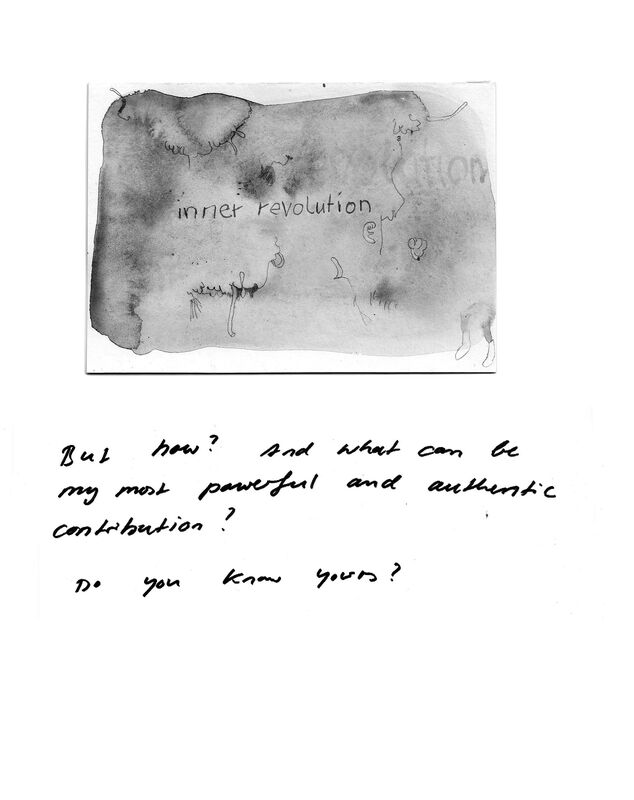 inner revolution
But how? And what can be
my most powerful and authentic
contribution?
Do you know yours?